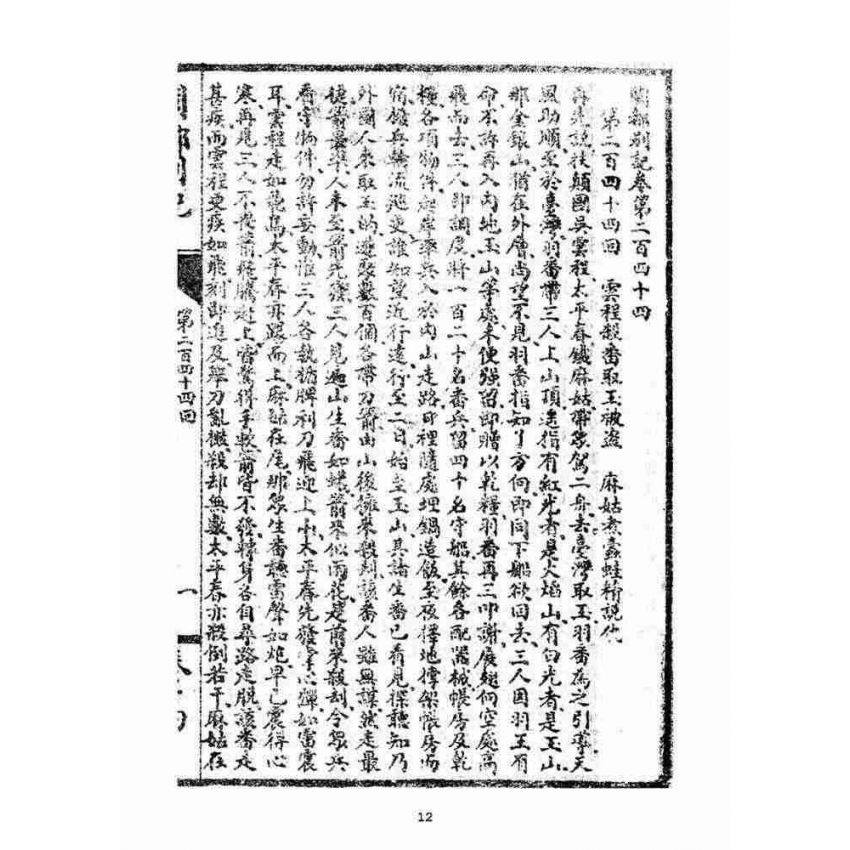 閩都別記卷第二百四十四
第二百四十四回 雲程殺番取玉被盜 麻姑煮蠡蛙精説仇
再先説扶顛國吳雲程太平春鐵麻姑帶眾駕二舟去臺灣取玉羽番為之引導天
風助順至於臺灣羽番帶三人上山頂遥指有紅光者是火焰山有白光者是玉山
那金銀山猶在外層尚望不見羽番指知了方向即同下船欲回去三人因羽王有
命不許再入內地玉山等處未便強留即贈以乾糧羽番再三叩謝展翅向空處高
飛而去三人即調度將一百二十名番兵留四十名守船其餘各配器械帳房及乾
糧各項物件起岸率兵入於內山走路日裡隨處埋鍋造飯至夜擇地撐架帳房而
宿撥兵輪流巡更誰知望近行遠行至二日始至玉山其諸生番已看見探聽知乃
外國人來取玉的遂聚數百個各帶刀箭由山後擁來殺刮該番人雖無謀然走最
捷箭最準人未至箭先發三人見遍山生番如蝶箭來似雨花是前來殺刮令眾兵
看守物件勿許妄動惟三人各執猶牌利刀飛迎上山太平春先發掌心彈如雷震
耳雲程走如飛鳥太平春亦跟而上麻姑在尾那眾生番聽雷聲如炮早已震得心
寒再見三人不畏箭飛騰赴上皆驚得手軟箭皆不發轉身各自尋路走脫該番走
甚疾而雲程更疾如飛刻即追及舉刀亂撇殺却無數太平春亦殺倒若干麻姑在
閩都別記
第二百四十四回
一
12